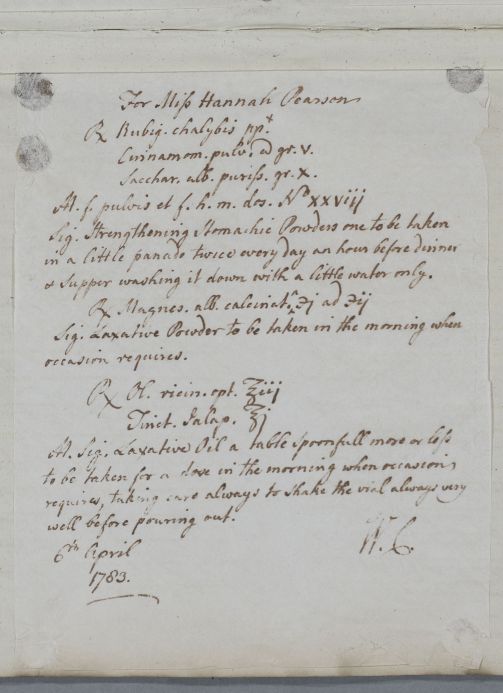 For Miss Hannah Pearson
℞ Rubig. chalybis ppt.
Cinnamom. pulv. a gr. v.
Sacchar. alb. puriss. gr. x.
M. f. pulvis et f. h. m. dos. No xxviij
Sig. Strengthening Stomachic Powders one to be taken
in a little panado twice every day an hour before dinner
& supper washing it down with a little water only.
℞ Magnes. alb. calcinat. ℈j ad ℈ij
Sig. Laxative Powder to be taken in the morning when
occasion requires.
℞ Ol. ricin. opt. ℥iij
Tinct. Jalap. ℥j
M. Sig. Laxative Oil a table spoonfull more or less
to be taken for a dose in the morning when occasion
requires, taking care always to shake the vial always very
well before pouring out.
6th April
1783.
W. C.